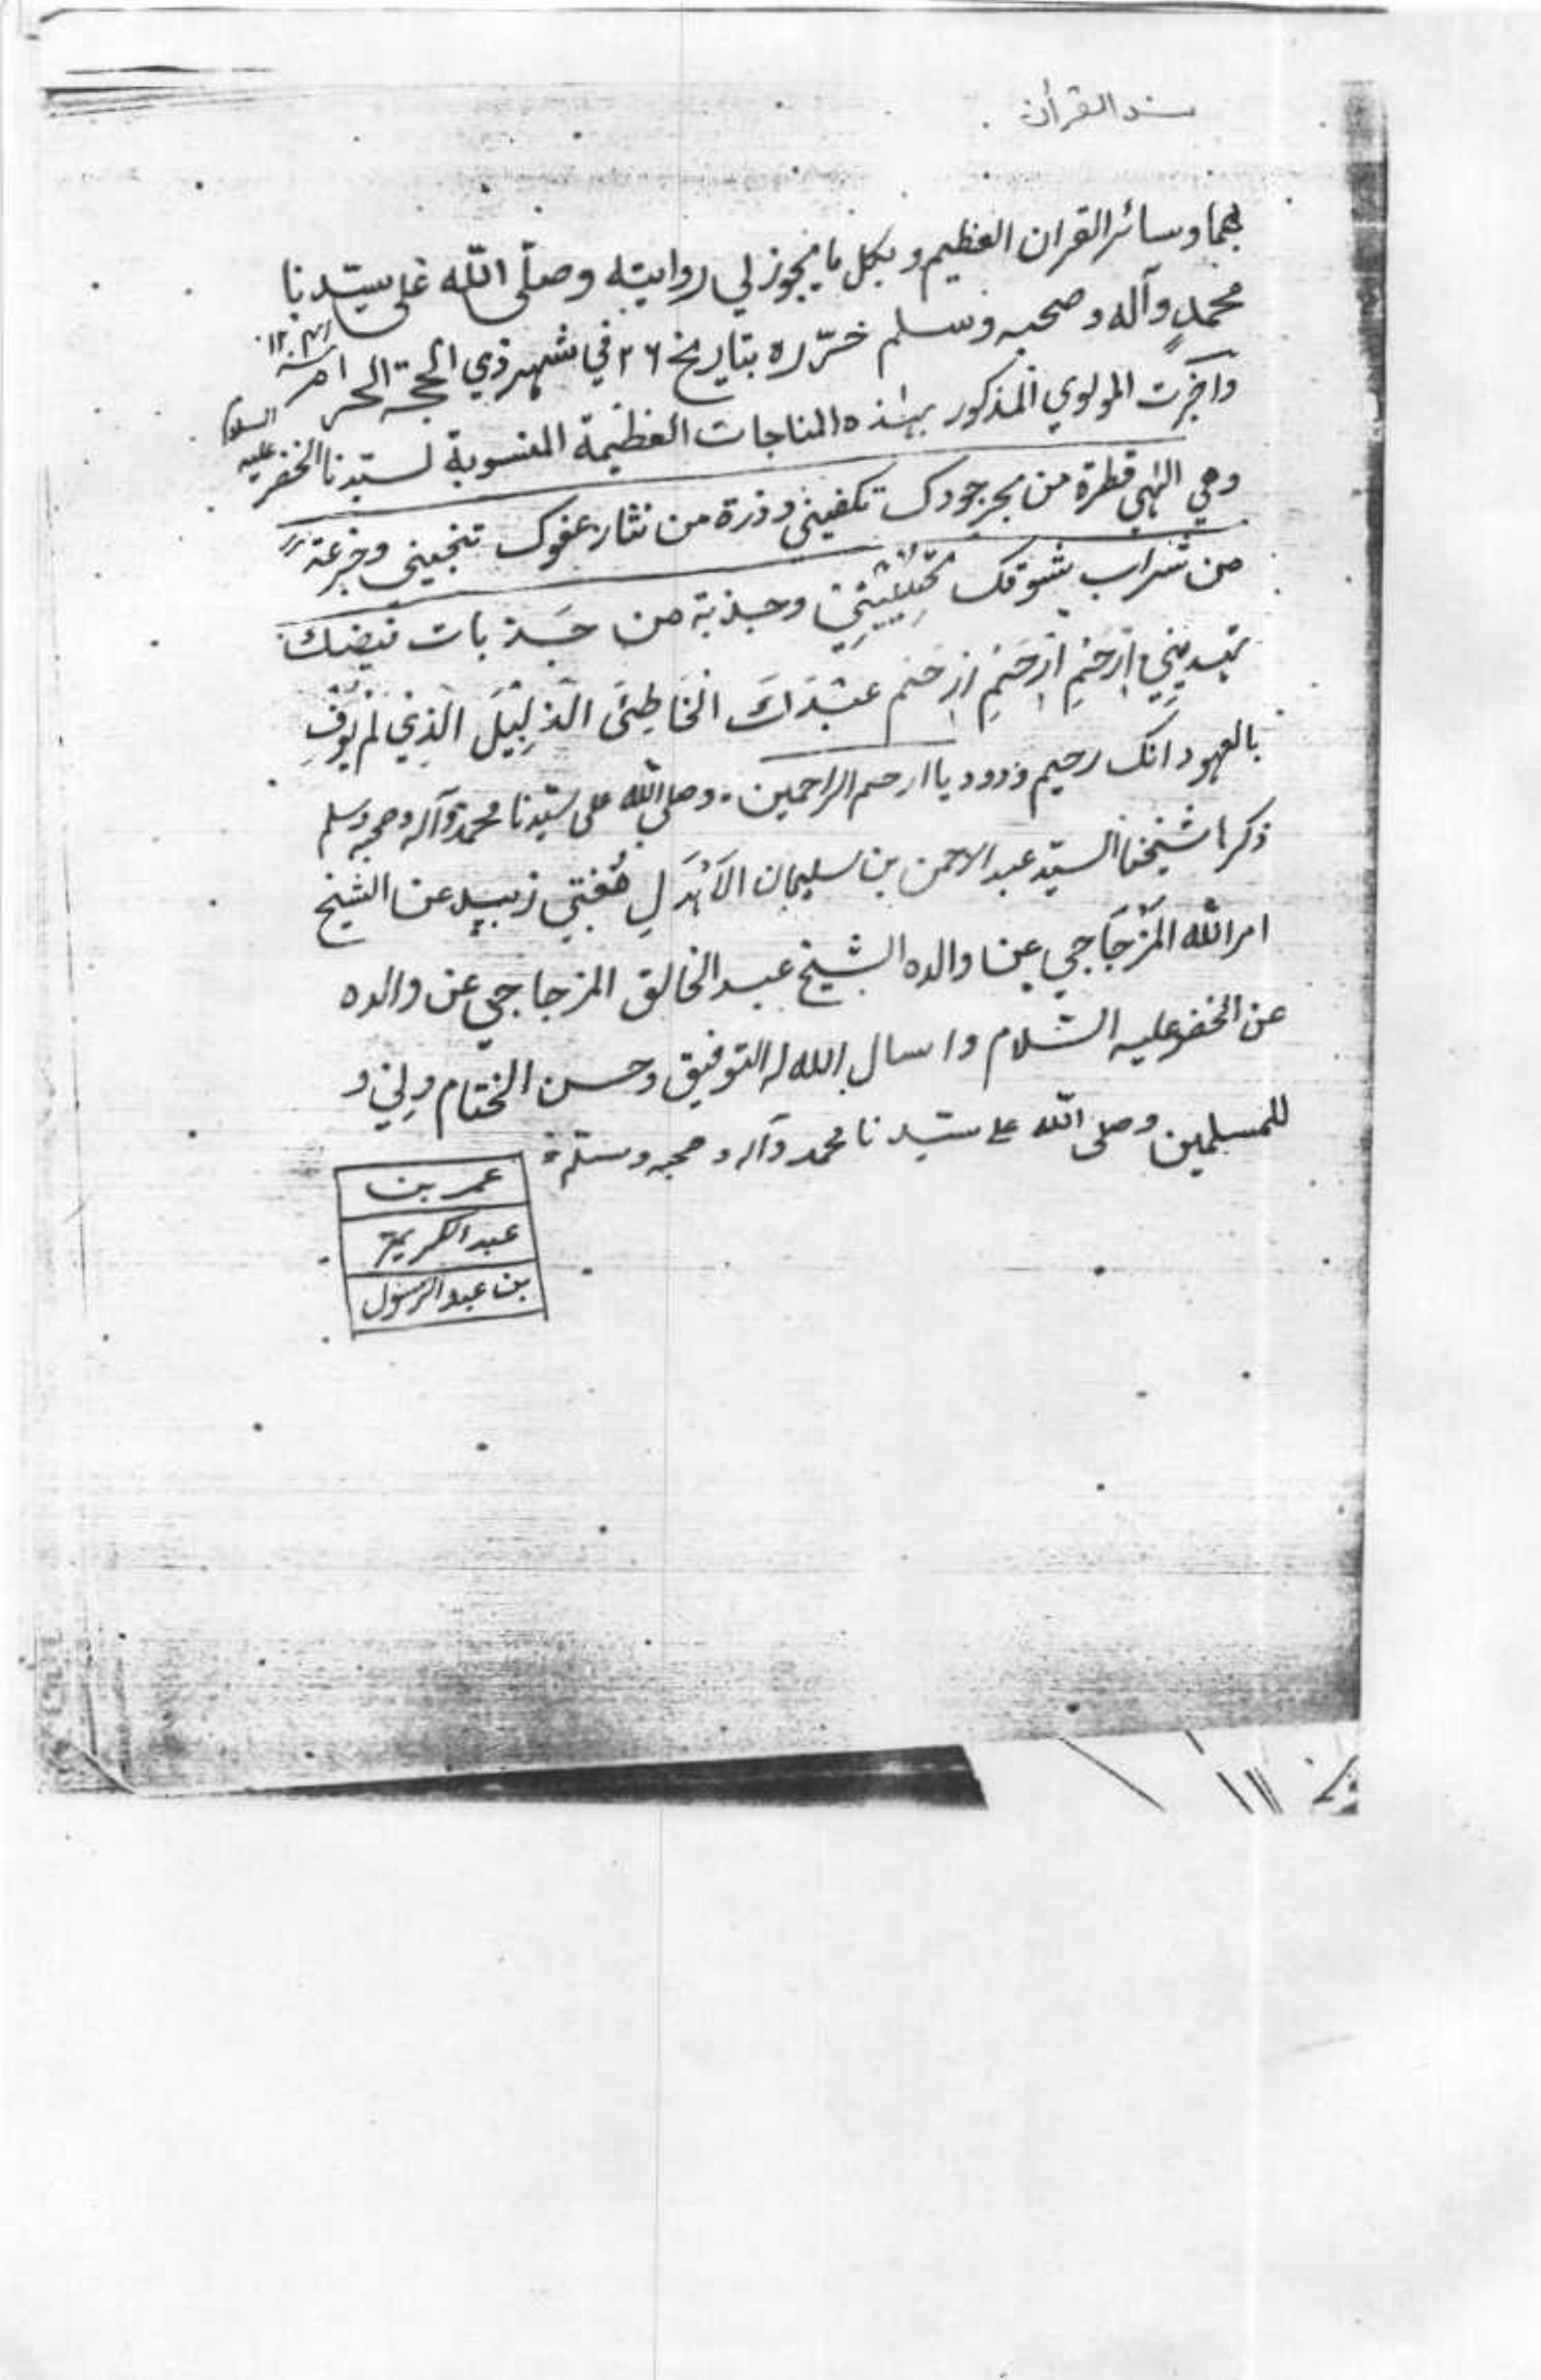 سند القرأن
بهما وسائر القران العظيم وبكل ما يجوز لي روايته وصلّى اللّه على سيّدنا
محمدٍ وآله وصحبه وسلم حرّره بتاريخ ٢٦ في شهر ذي الحجة الحرام
واجزت المولوي المذكور بهذه المناجات العظيمة المنسوبة لسيّدنا الخضر عليه السلام
وهي الهي قطرة من بحر جودك تكفيني وذرة من نثار عفوك تنجيني وجرعة
من شراب شوقك وجذبة من جَذبات فيضك
اِرْحَمِ اِرْحَمِ اِرْحَم عَبْدَكَ الْخَاطِئَ الذَّلِيْلَ الَّذِيْ لَمْ يُوْفِ
بالعهود انك رحيم ودود يا ارحم الراحمين وصلى اللّه على سيّدنا محمد وآله وصحبه وسلم
ذكرها شيخنا السيّد عبد الرحمن بن سليمان الأَهْدَلِ مُفتي زبيد عن الشيخ
امر اللّه المَزْجَاجي عن والده الشيخ عبد الخالق المزجاجي عن والده
عن الخضر عليه السّلام واسال الله له التوفيق وحسن الختام ولِيْ و
للمسلمين وصلى اللّه على سيّدنا محمد وآله وصحبه وسلّم
عمر بن
عبد الكريم
بن عبد الرّسول